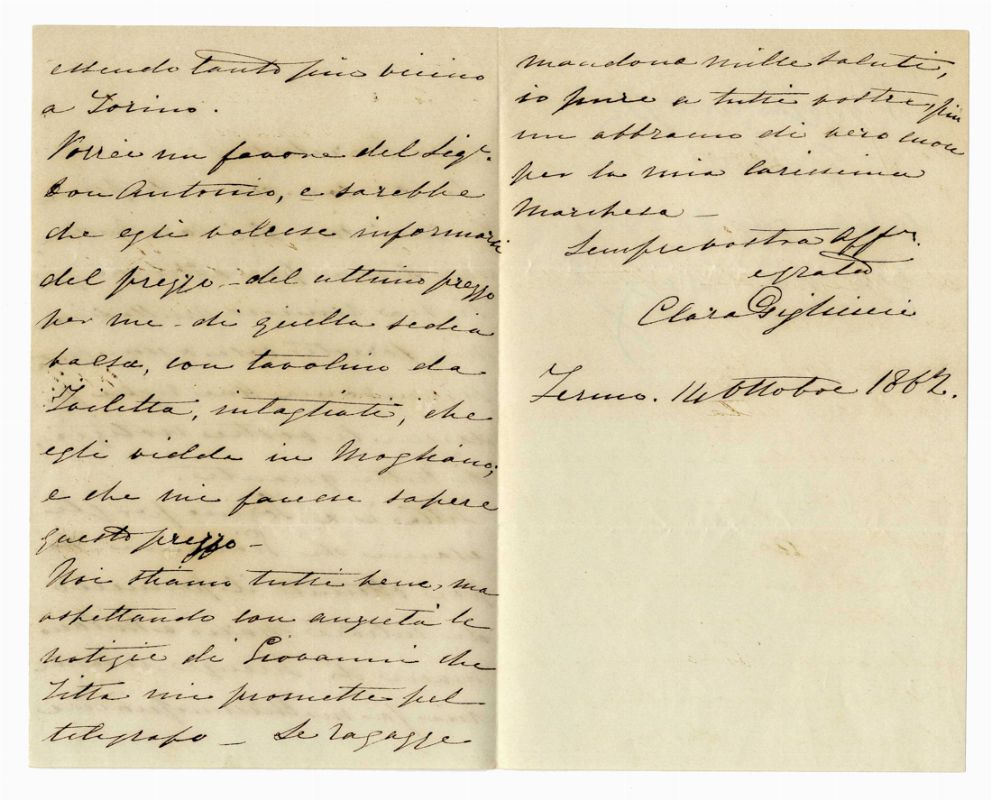 essendo tanto più vicino
a Torino.
Vorrei un favore del Sigr.
Don Antonio, e sarebbe
che egli volesse informarsi
del prezzo – del ultimo prezzo
per me – di quella sedia
balsa, con tavolino da
Toiletta, intagliati, che
egli vidde in Mogliano;
e che mi facesse sapere
questo prezzo –
Noi stiamo tutti bene, ma
aspettando con ansietà le
notizie di Giovanni che
Titta mi promette pel
telegrafo – Le ragazze
mandono mille saluti,
io pure a tutti vostri, più
un abbraccio di vero cuore
per la mia carissima
Marchesa –
Sempre vostra Affma.
e grata
Clara Gigliucci
Fermo. 14 Ottobre 1862.